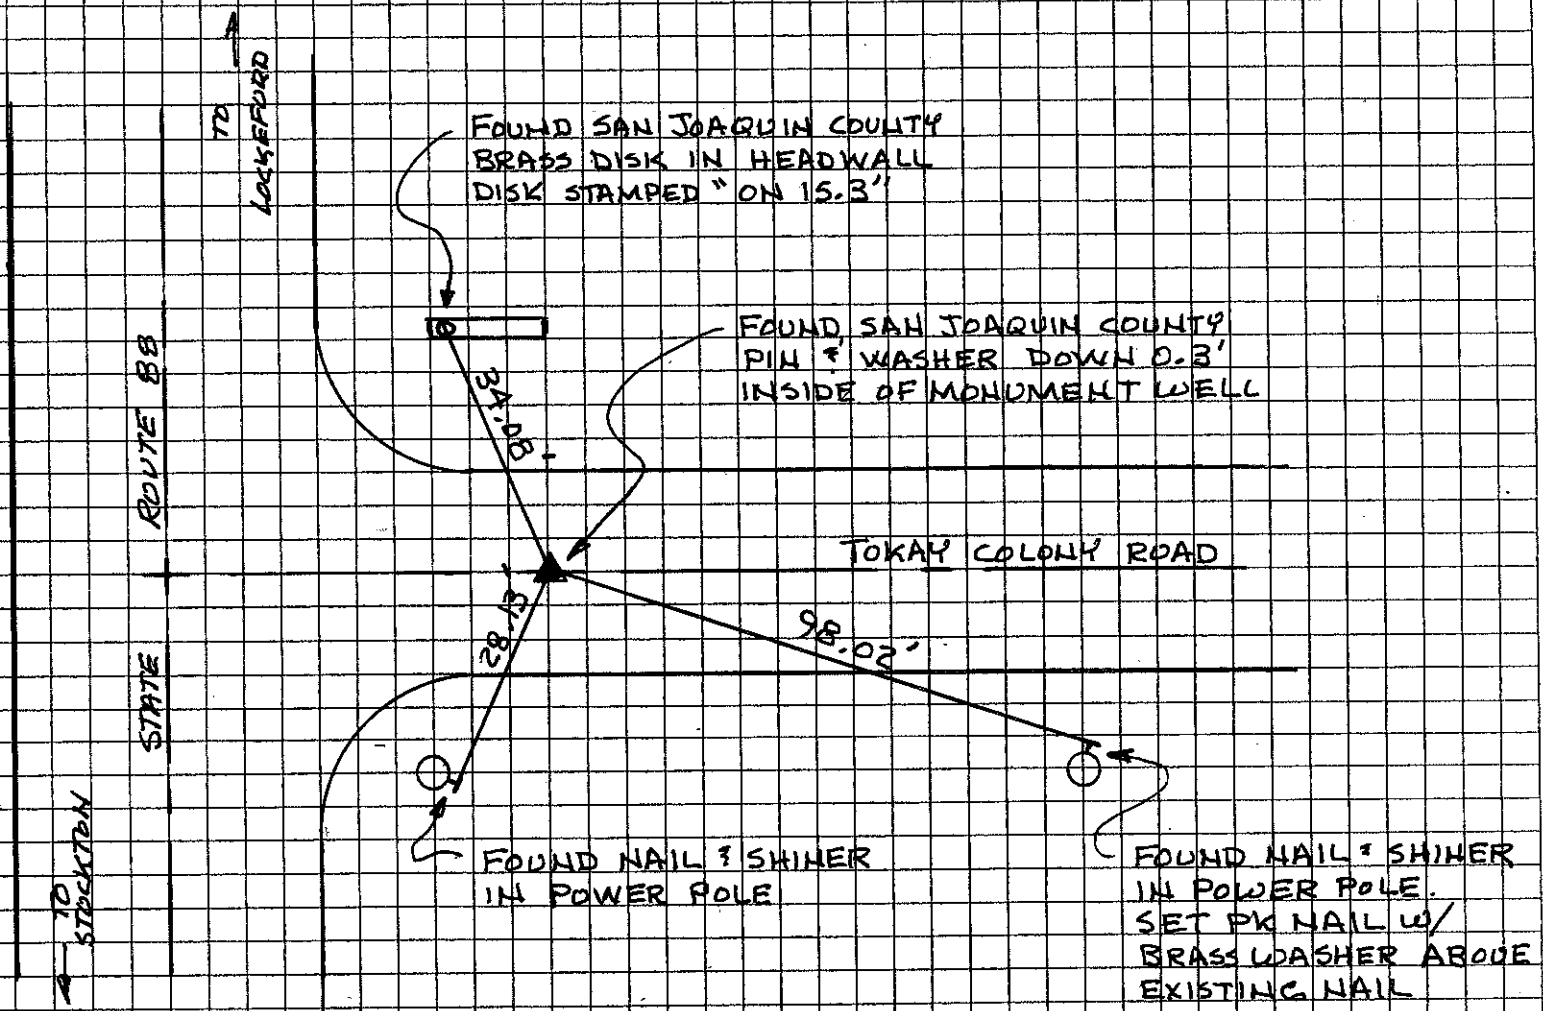 TO
LOCKEFORD
FOUND SAN JOAQUIN COUNTY
BRASS DISK IN HEADWALL
DISK STAMPED "ON 15.3"
FOUND SAN JOAQUIN COUNTY
PIN & WASHER DOWN 0.3'
INSIDE OF MONUMENT WELL
34.08'
STATE ROUTE 88
TOKAY COLONY ROAD
28.13'
98.02'
TO
STOCKTON
FOUND NAIL & SHINER
IN POWER POLE
FOUND NAIL & SHINER
IN POWER POLE.
SET PK NAIL W/
BRASS WASHER ABOVE
EXISTING NAIL